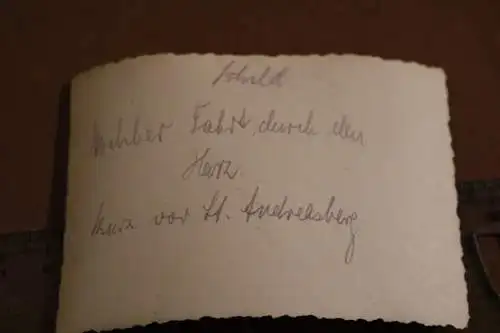 Fahrt durch den
Harz
kurz vor St. Andreasberg